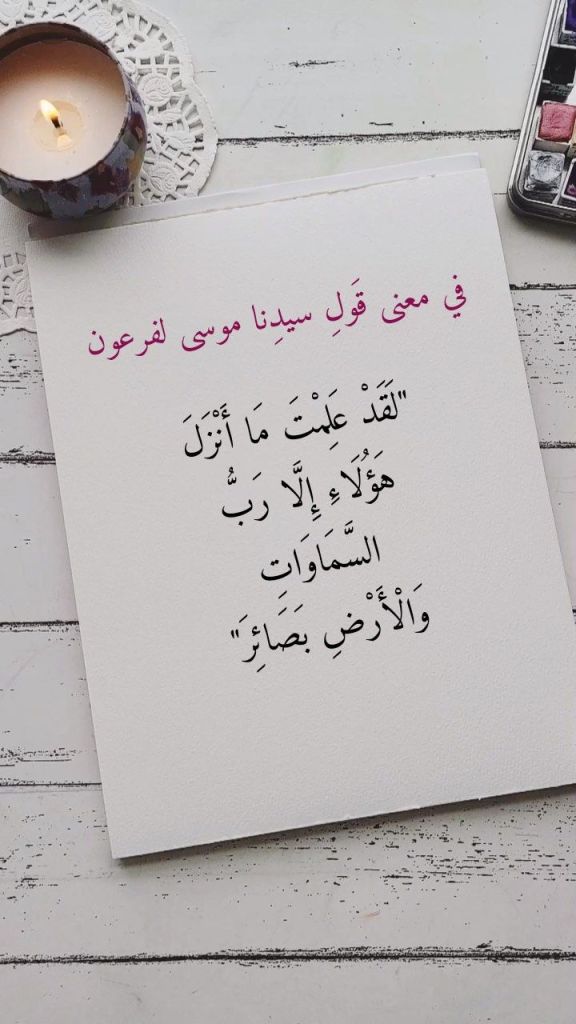 في معنى قَولِ سيدِنا موسى لفرعون
"لَقَدْ عَلِمْتَ مَا أَنْزَلَ
هَؤُلَاءِ إِلَّا رَبُّ
السَّمَاوَاتِ
وَالْأَرْضِ بَصَائِرَ"